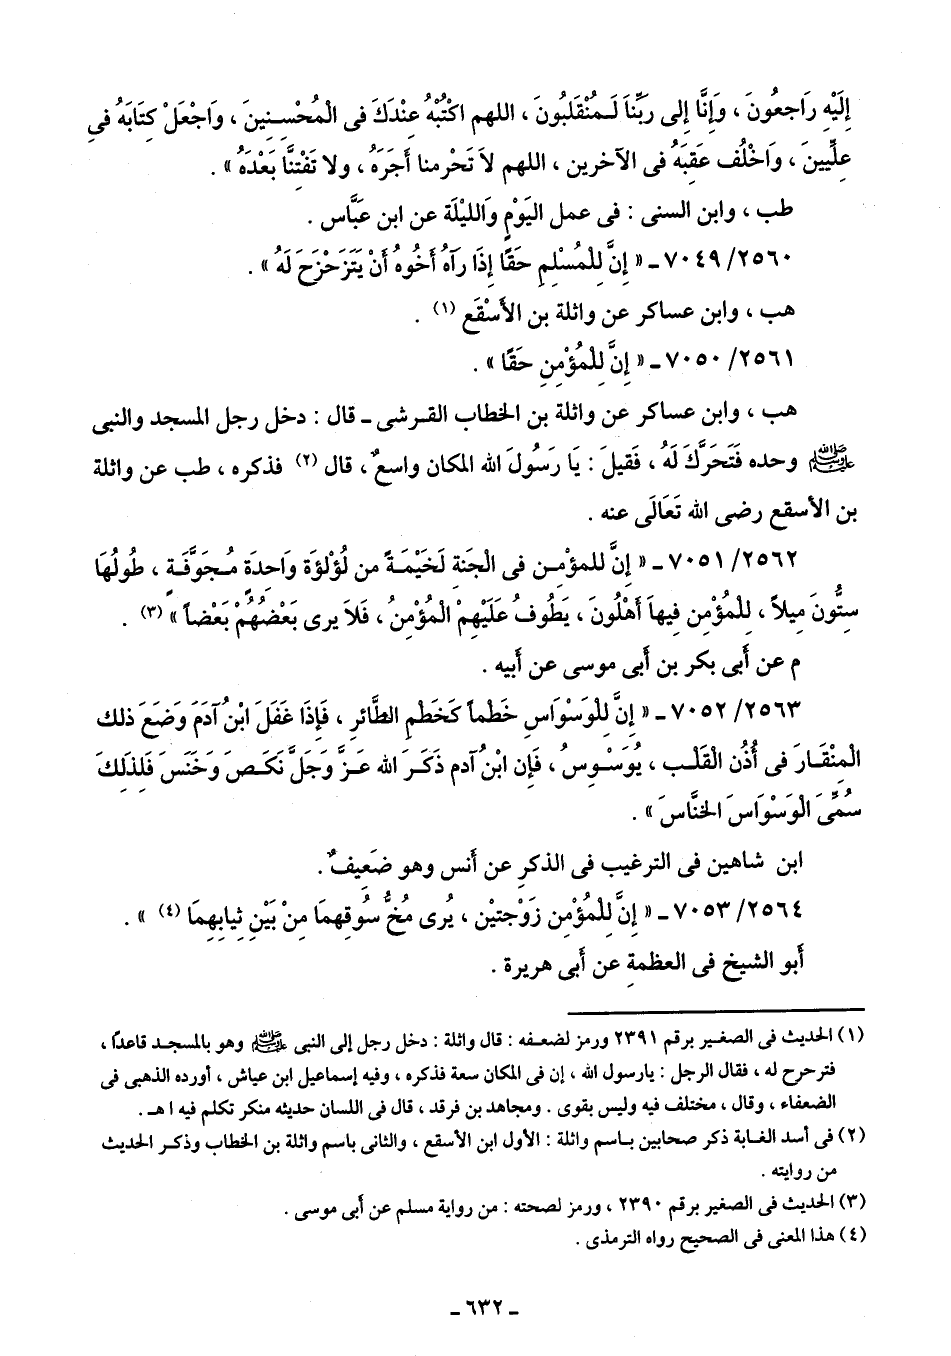 إِلَيْهِ رَاجعُونَ ، وَإِنَّا إلى رَبِّنَا لَـمُنْقَلبُونَ ، اللهم اكْتُبْهُ عنْدَكَ فى الْمُحْسِنِينَ ، وَاجْعَلْ كِتَابَهُ فى
عِلِّيِّينَ ، وَاخْلُف عَقِبَهُ فى الآخرين ، اللهم لاَ تَحْرِمنا أَجرَهُ ، ولا تَفْتنَّا بَعْدَهُ » .
طب ، وابن السنى : فى عمل اليَوْمِ وَالليْلَة عن ابن عَبَّاس .
٢٥٦٠/ ٧٠٤٩ ـ « إِنَّ لِلْمُسْلِمِ حَقًا إِذَا رَآهُ أَخُوهُ أَنْ يَتَزَحْزَحَ لَهُ » .
هب ، وابن عساكر عن واثلة بن الأَسْقَع (١) .
٢٥٦١/ ٧٠٥٠ ـ « إِنَّ لِلْمُؤْمِنِ حَقًا » .
هب ، وابن عساكر عن واثلة بن الخطاب القـرشى ـ قال : دخل رجل المسجد والنبى
ﷺ وحده فَتَحَرَّكَ لَهُ ، فَقيلَ : يَا رَسُولَ الله المكان واسعٌ ، قال (٢) فذكره ، طب عن واثلة
بن الأسقع رضى الله تَعَالَى عنه .
٢٥٦٢/ ٧٠٥١ ـ « إِنَّ للمؤْمِـن فى الْجَنة لَخَيْمَـةً من لُؤْلؤَة وَاحِدَة مُـجَوَّفَـةٍ ، طُولُهَا
ستُّونَ مِيلاً ، لِلْمُؤْمِن فِيهاَ أَهْلُونَ ، يَطُوفُ عَلَيْهِمْ الْمُؤْمنُ ، فَلاَ يرى بَعْضُهُمْ بَعْضاً » (٣) .
م عن أبى بكر بن أبى موسى عن أبيه .
٢٥٦٣/ ٧٠٥٢ ـ « إِنَّ لِلْوَسْوَاسِ خَطْماً كَخَطْمِ الطَّائرِ ، فَإِذَا غَفَلَ ابْنُ آدَمَ وَضَعَ ذلك
الْمِنْقَـارَ فى أُذُن الْقَلْـب ، يُوَسْـوِسُ ، فَإِن ابْنُ آدم ذَكَـرَ الله عَـزَّ وَجَلَّ نَكَـصَ وَخَنَسَ فَلذَلكَ
سُمِّىَ الْوَسْوَاسَ الخنَّاسَ » .
ابن شاهين فى الترغيب فى الذكرِ عن أَنس وهو ضَعِيفٌ .
٢٥٦٤/ ٧٠٥٣ ـ « إِنَّ لِلْمُؤْمِن زَوْجتيْن ، يُرى مُخُّ سُوقِهمَا مِنْ بَيْنِ ثِيابِهِمَا (٤) » .
أبو الشيخ فى العظمةِ عن أبى هريرة .
(١) الحديث فى الصغير برقم ٢٣٩١ ورمز لضعـفه : قال واثلة : دخل رجل إلى النبى ﷺ وهو بالمسجـد قاعداً ،
فترحرح له ، فقال الرجل : يارسول الله ، إن فى المكان سعة فذكره ، وفيه إسماعيل ابن عياش ، أورده الذهبى فى
الضعفاء ، وقال ، مختلف فيه وليس بقوى . ومجاهد بن فرقد ، قال فى اللسان حديثه منكر تكلم فيه ا هـ .
(٢) فى أسد الغـابة ذكر صحابين بـاسم واثلة : الأول ابن الأسقع ، والثانى باسم واثلة بن الخطاب وذكـر الحديث
من روايته .
(٣) الحديث فى الصغير برقم ٢٣٩٠ ، ورمز لصحته : من رواية مسلم عن أبى موسى .
(٤) هذا المعنى فى الصحيح رواه الترمذى .
ـ ٦٣٢ ـ